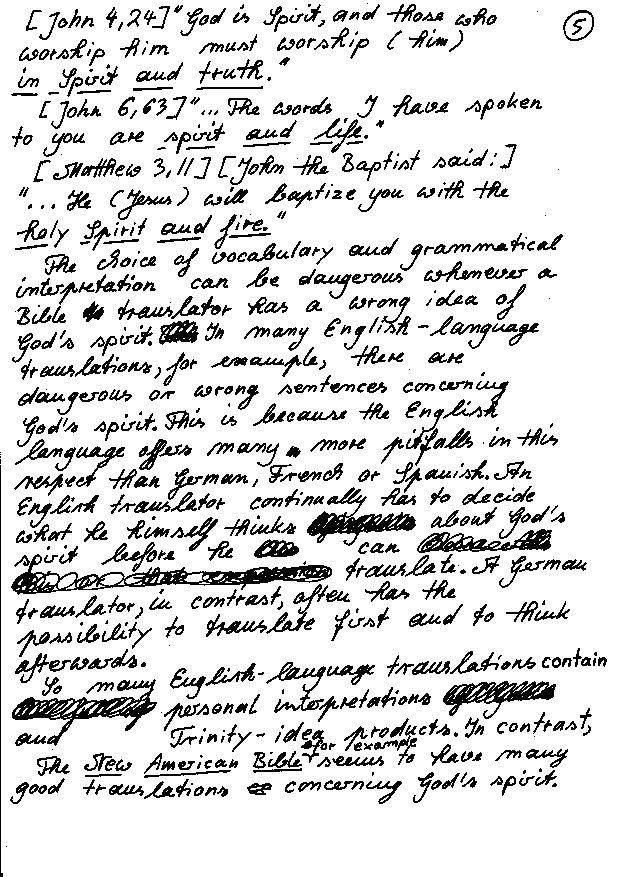 [John 4,24] "God is Spirit, and those who
5
worship him must worship (him)
in Spirit and truth."
[John 6,63] "... The words I have spoken
to you are spirit and life."
[Matthew 3,11] [John the Baptist said:]
"... He (Jesus) will baptize you with the
holy Spirit and fire."
The choice of vocabulary and grammatical
interpretation can be dangerous whenever a
Bible translator has a wrong idea of
God's spirit. In many English-language
translations, for example, there are
dangerous or wrong sentences concerning
God's spirit. This is because the English
language offers many more pitfalls in this
respect than German, French or Spanish. An
English translator continually has to decide
what he himself thinks about God's
spirit before he can
translate. A German
translator, in contrast, often has the
possibility to translate first and to think
afterwards.
So many English-language translations contain
personal interpretations
and Trinity-idea products. In contrast,
for example
The New American Bible seems to have many
good translations concerning God's spirit.